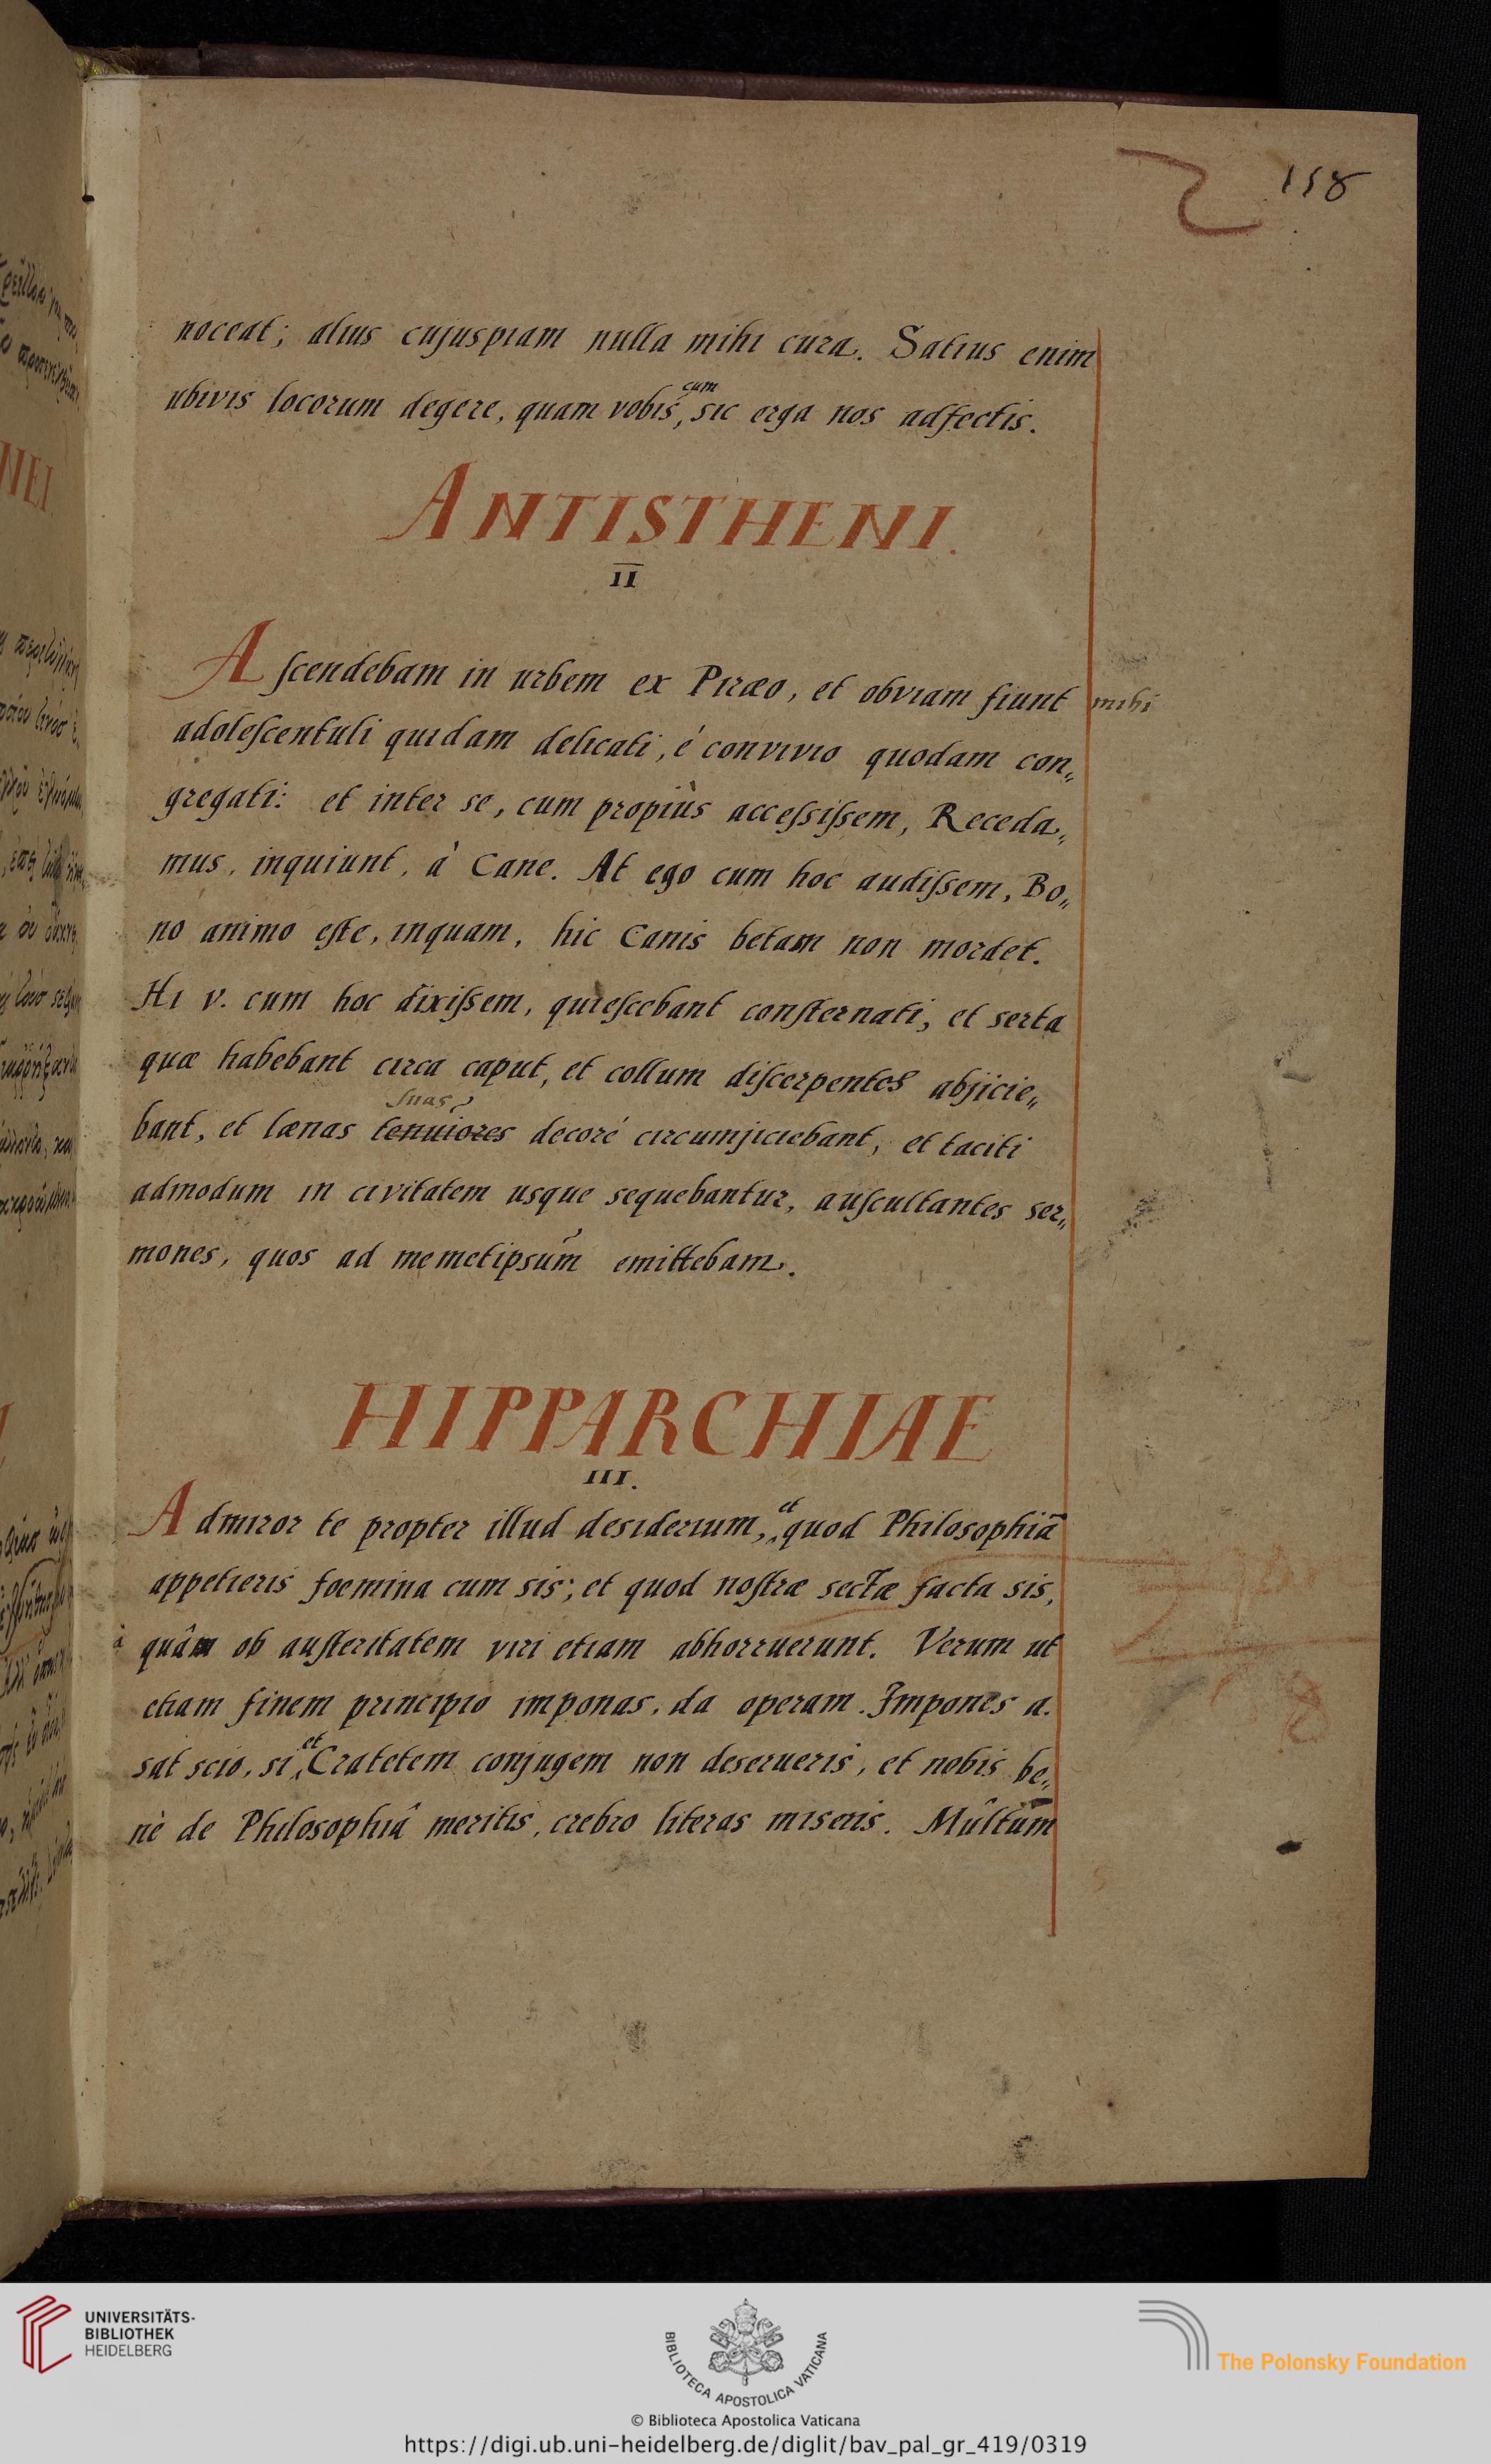 158
noceat; alius cujuspiam nulla mihi cura. Satius enim
ubivis locorum degere, quam vobiscum, sic erga nos adfectis.
ANTISTHENI.
II
Ascendebam in urbem ex Piræo, et obviam fiunt mihi
adolescentuli quidam delicati, é convivio quodam con„
gregati: et inter se, cum propiùs accessissem, Receda„
mus, inquiunt, à Cane. At ego cum hoc audissem, Bo„
no animo este, inquam, hic Canis betam non mordet.
Hi v. cum hoc dixissem, quiescebant consternati, et serta
quæ habebant circa caput, et collum discerpentes abjicie„
suas
bant, et lænas tenuiores decoré circumjiciebant, et taciti
admodum in civitatem usque sequebantur, auscultantes ser„
mones, quos ad memetipsum emittebam.
HIPPARCHIAE
III.
Admiror te propter illud desiderium, et quod Philosophiã
appetieris foemina cum sis; et quod nostræ sectæ facta sis,
à quâ ob austeritatem viri etiam abhorruerunt. Verum ut
etiam finem principio imponas, da operam. Impones a.
sat scio, si et Cratetem conjugem non deserueris, et nobis be„
nè de Philosophiâ meritis, crebro literas miseris. Multum
UNIVERSITÄTS-
BIBLIOTHEK
HEIDELBERG
BIBLIOTECA APOSTOLICA VATICANA
The Polonsky Foundation
© Biblioteca Apostolica Vaticana
https://digi.ub.uni-heidelberg.de/diglit/bav_pal_gr_419/0319